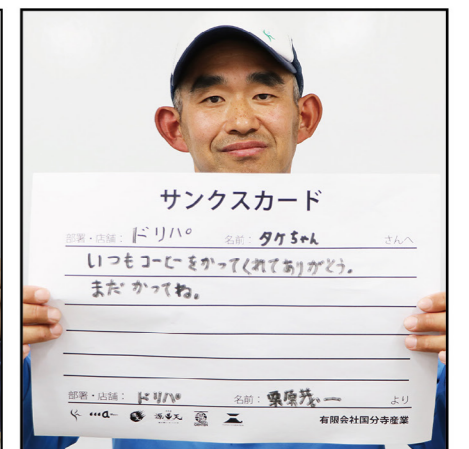 サンクスカード
部署・店舗：ドリパ 名前：タケちゃん さんへ
いつもコーヒーをかってくれてありがとう。
まだかってね。
部署・店舗：ドリパ 名前：栗原茂一 より
有限会社国分寺産業